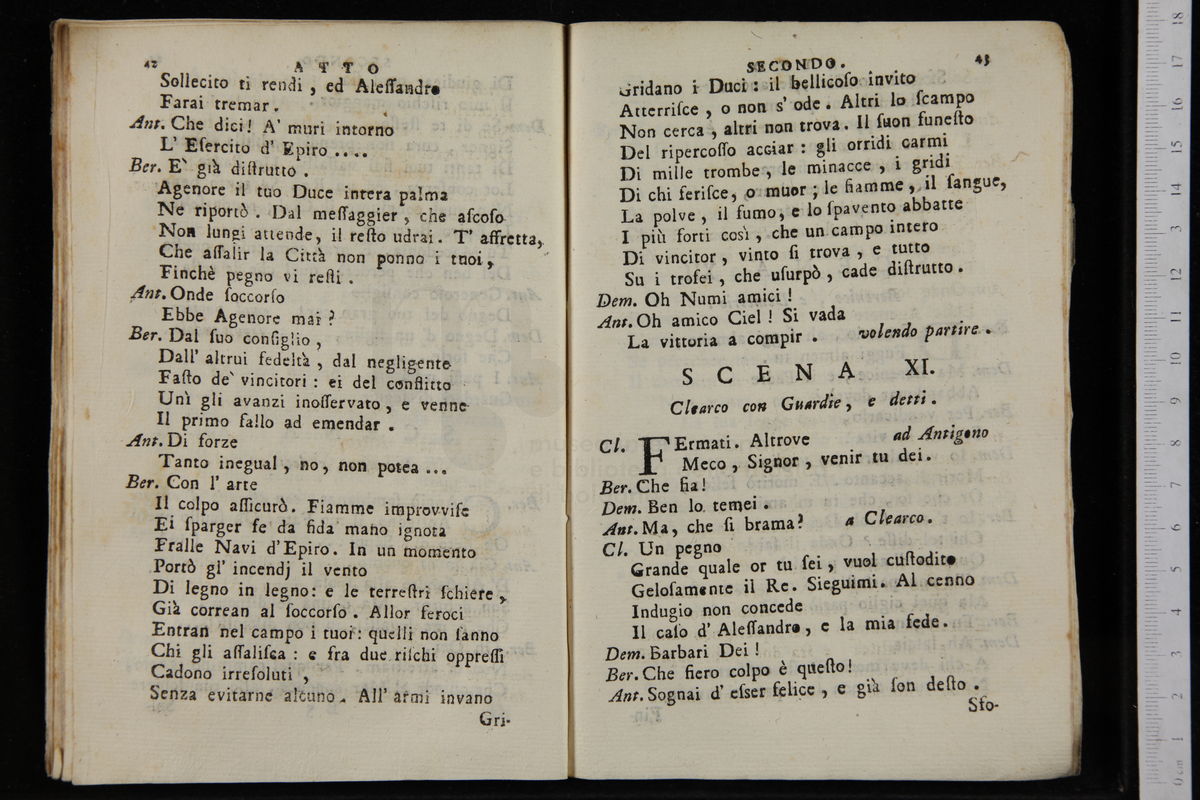 42 ATTO
Sollecito ti rendi , ed Aleſſandro
Farai tremar .
Ant. Che dici! A' muri intorno
L' Eſercito d' Epiro ....
Ber. E` già diſtrutto .
Agenore il tuo Duce intera palma
Ne riportò . Dal meſſaggier , che aſcoſo
Non lungi attende, il reſto udrai. T' affretta,
Che aſſalir la Città non ponno i tuoi,
Finchè pegno vi reſti .
Ant. Onde ſoccorſo
Ebbe Agenore mai ?
Ber. Dal ſuo conſiglio ,
Dall' altrui fedeltà , dal negligente
Faſto de` vincitori : ei del conflitto
Unì gli avanzi inoſſervato , e venne
Il primo fallo ad emendar .
Ant. Di forze
Tanto inegual , no, non potea ...
Ber. Con l' arte
Il colpo aſſicurò. Fiamme improvviſe
Ei ſparger fe' da fida mano ignota
Fralle Navi d'Epiro. In un momento
Portò gl' incendj il vento
Di legno in legno: e le terreſtri ſchiere ,
Già correan al ſoccorſo . Allor feroci
Entran nel campo i tuoi: quelli non ſanno
Chi gli aſſaliſca : e fra due riſchi oppreſſi
Cadono irreſoluti ,
Senza evitarne alcuno . All' armi invano
Gri-
SECONDO. 43
Gridano i Duci : il bellicoſo invito
Atterriſce , o non s' ode . Altri lo ſcampo
Non cerca , altri non trova. Il ſuon funeſto
Del ripercoſſo acciar : gli orridi carmi
Di mille trombe , le minacce , i gridi
Di chi feriſce, o muor ; le fiamme , il ſangue,
La polve , il fumo, e lo ſpavento abbatte
I più forti così , che un campo intero
Di vincitor , vinto ſi trova , e tutto
Su i trofei , che uſurpò , cade diſtrutto .
Dem. Oh Numi amici !
Ant. Oh amico Ciel ! Si vada
La vittoria a compir . volendo partire .
SCENA XI.
Clearco con Guardie, e detti .
Cl. FErmati. Altrove ad Antigono
Meco , Signor , venir tu dei .
Ber. Che fia!
Dem. Ben lo temei .
Ant. Ma, che ſi brama? a Clearco .
Cl. Un pegno
Grande quale or tu ſei , vuol cuſtodito
Geloſamente il Re. Sieguimi. Al cenno
Indugio non concede
Il caſo d' Aleſſandro, e la mia fede.
Dem. Barbari Dei !
Ber. Che fiero colpo è queſto!
Ant. Sognai d' eſser felice , e già ſon deſto .
Sfo-